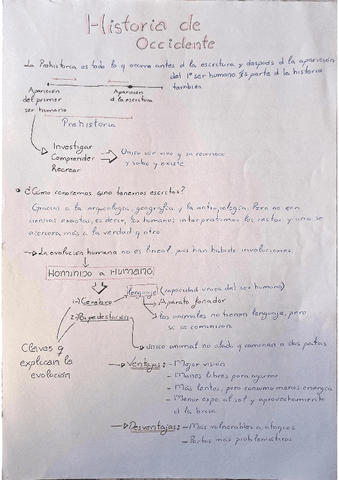 Historia de
Occidente
La Prehistoria es todo lo q ocurre antes d la escritura y después d la aparición
del 1º ser humano y es parte d la historia
también
Aparición
del primer
ser humano
Aparición
d la escritura
Prehistoria
Investigar
Comprender
Recrear
Único ser vivo q se reconoce
y sabe q existe
¿Cómo conocemos q no tenemos escritos?
Gracias a la arqueología, geografía y la antropología. Pero no son
ciencias exactas, es decir, los humanos interpretamos los restos y uno se
acercara más a la verdad q otro
La evolución humana no es lineal, pues han habido involuciones.
Homínido a Humano
1-) Cerebro
lenguaje (capacidad única del ser humano)
Aparato fonador
los animales no tienen lenguaje, pero
sí se comunican
2-) Bipedestación
Único animal no alado q caminan a dos patas
Claves q
explican la
evolución
Ventajas: - Mejor visión
- Manos libres para agarrar
- Más lentos, pero consumo menos energía
- Menor expo. al sol y aprovechamiento
d la brisa
Desventajas: - Más vulnerables a ataques
- Partos más problemáticos